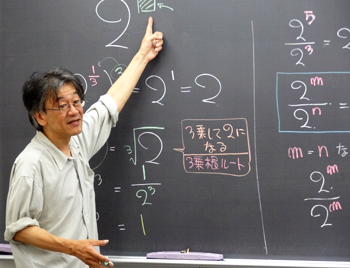 2
2^{1/3} ^3 = 2^1 = 2
= ∛2
3乗して2に
なる
3乗根ルート
= 1/2^3
= 1
2^5/2^3
2^m/2^n
m = n な
2^m/2^m